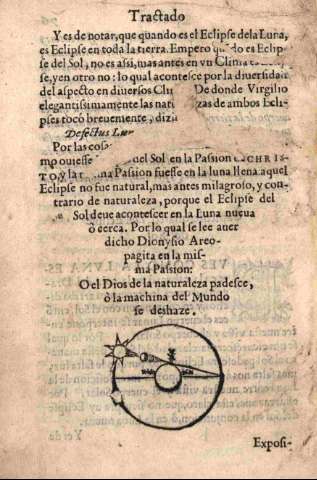 Tractado
Y es de notar, que quando es el Eclipse dela Luna,
es Eclipse en toda la tierra. Empero es Eclip-
se del Sol, no es assi, mas antes en vn Clima es
se, y en otro no: lo qual acontesce por la diuersidad
del aspecto en diuersos De donde Virgilio
elegantissimamente las de ambos Ecli-
pses tocò breuemente,
Defectus
Por las
del Sol en la Passion CHRIS-
TO, y la Passion fuesse en la luna llena aquel
Eclipse no fue natural, mas antes milagroso, y con-
trario de naturaleza, porque el Eclipse del
Sol deue acontescer en la Luna nueua
ò cerca. Por lo qual se lee auer
dicho Dionysio Areo-
pagita en la mis-
ma Passion:
O el Dios de la naturaleza padesce,
ò la machina del Mundo
se deshaze.
Exposi-